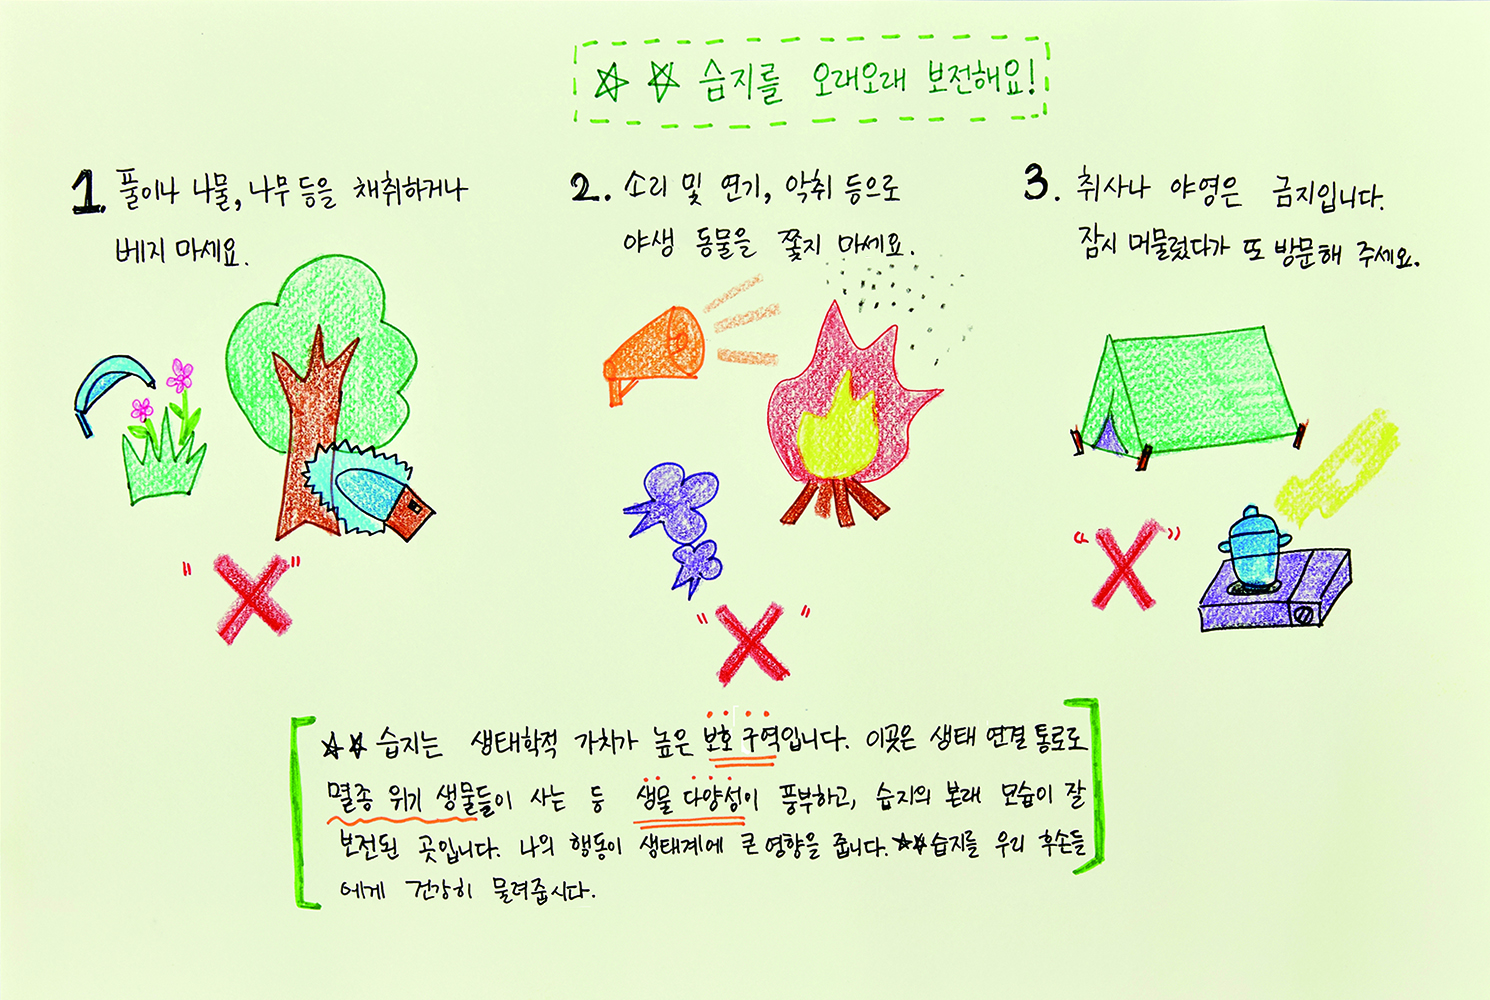 ☆☆ 습지를 오래오래 보전해요!
1. 풀이나 나물, 나무 등을 채취하거나
베지 마세요.
2. 소리 및 연기, 악취 등으로
야생 동물을 쫓지 마세요.
3. 취사나 야영은 금지입니다.
잠시 머물렀다가 또 방문해 주세요.
" X "
" X "
" X "
☆☆ 습지는 생태학적 가치가 높은 보호 구역입니다. 이곳은 생태 연결 통로로
멸종 위기 생물들이 사는 등 생물 다양성이 풍부하고, 습지의 본래 모습이 잘
보전된 곳입니다. 나의 행동이 생태계에 큰 영향을 줍니다. ☆☆습지를 우리 후손들
에게 건강히 물려줍시다.